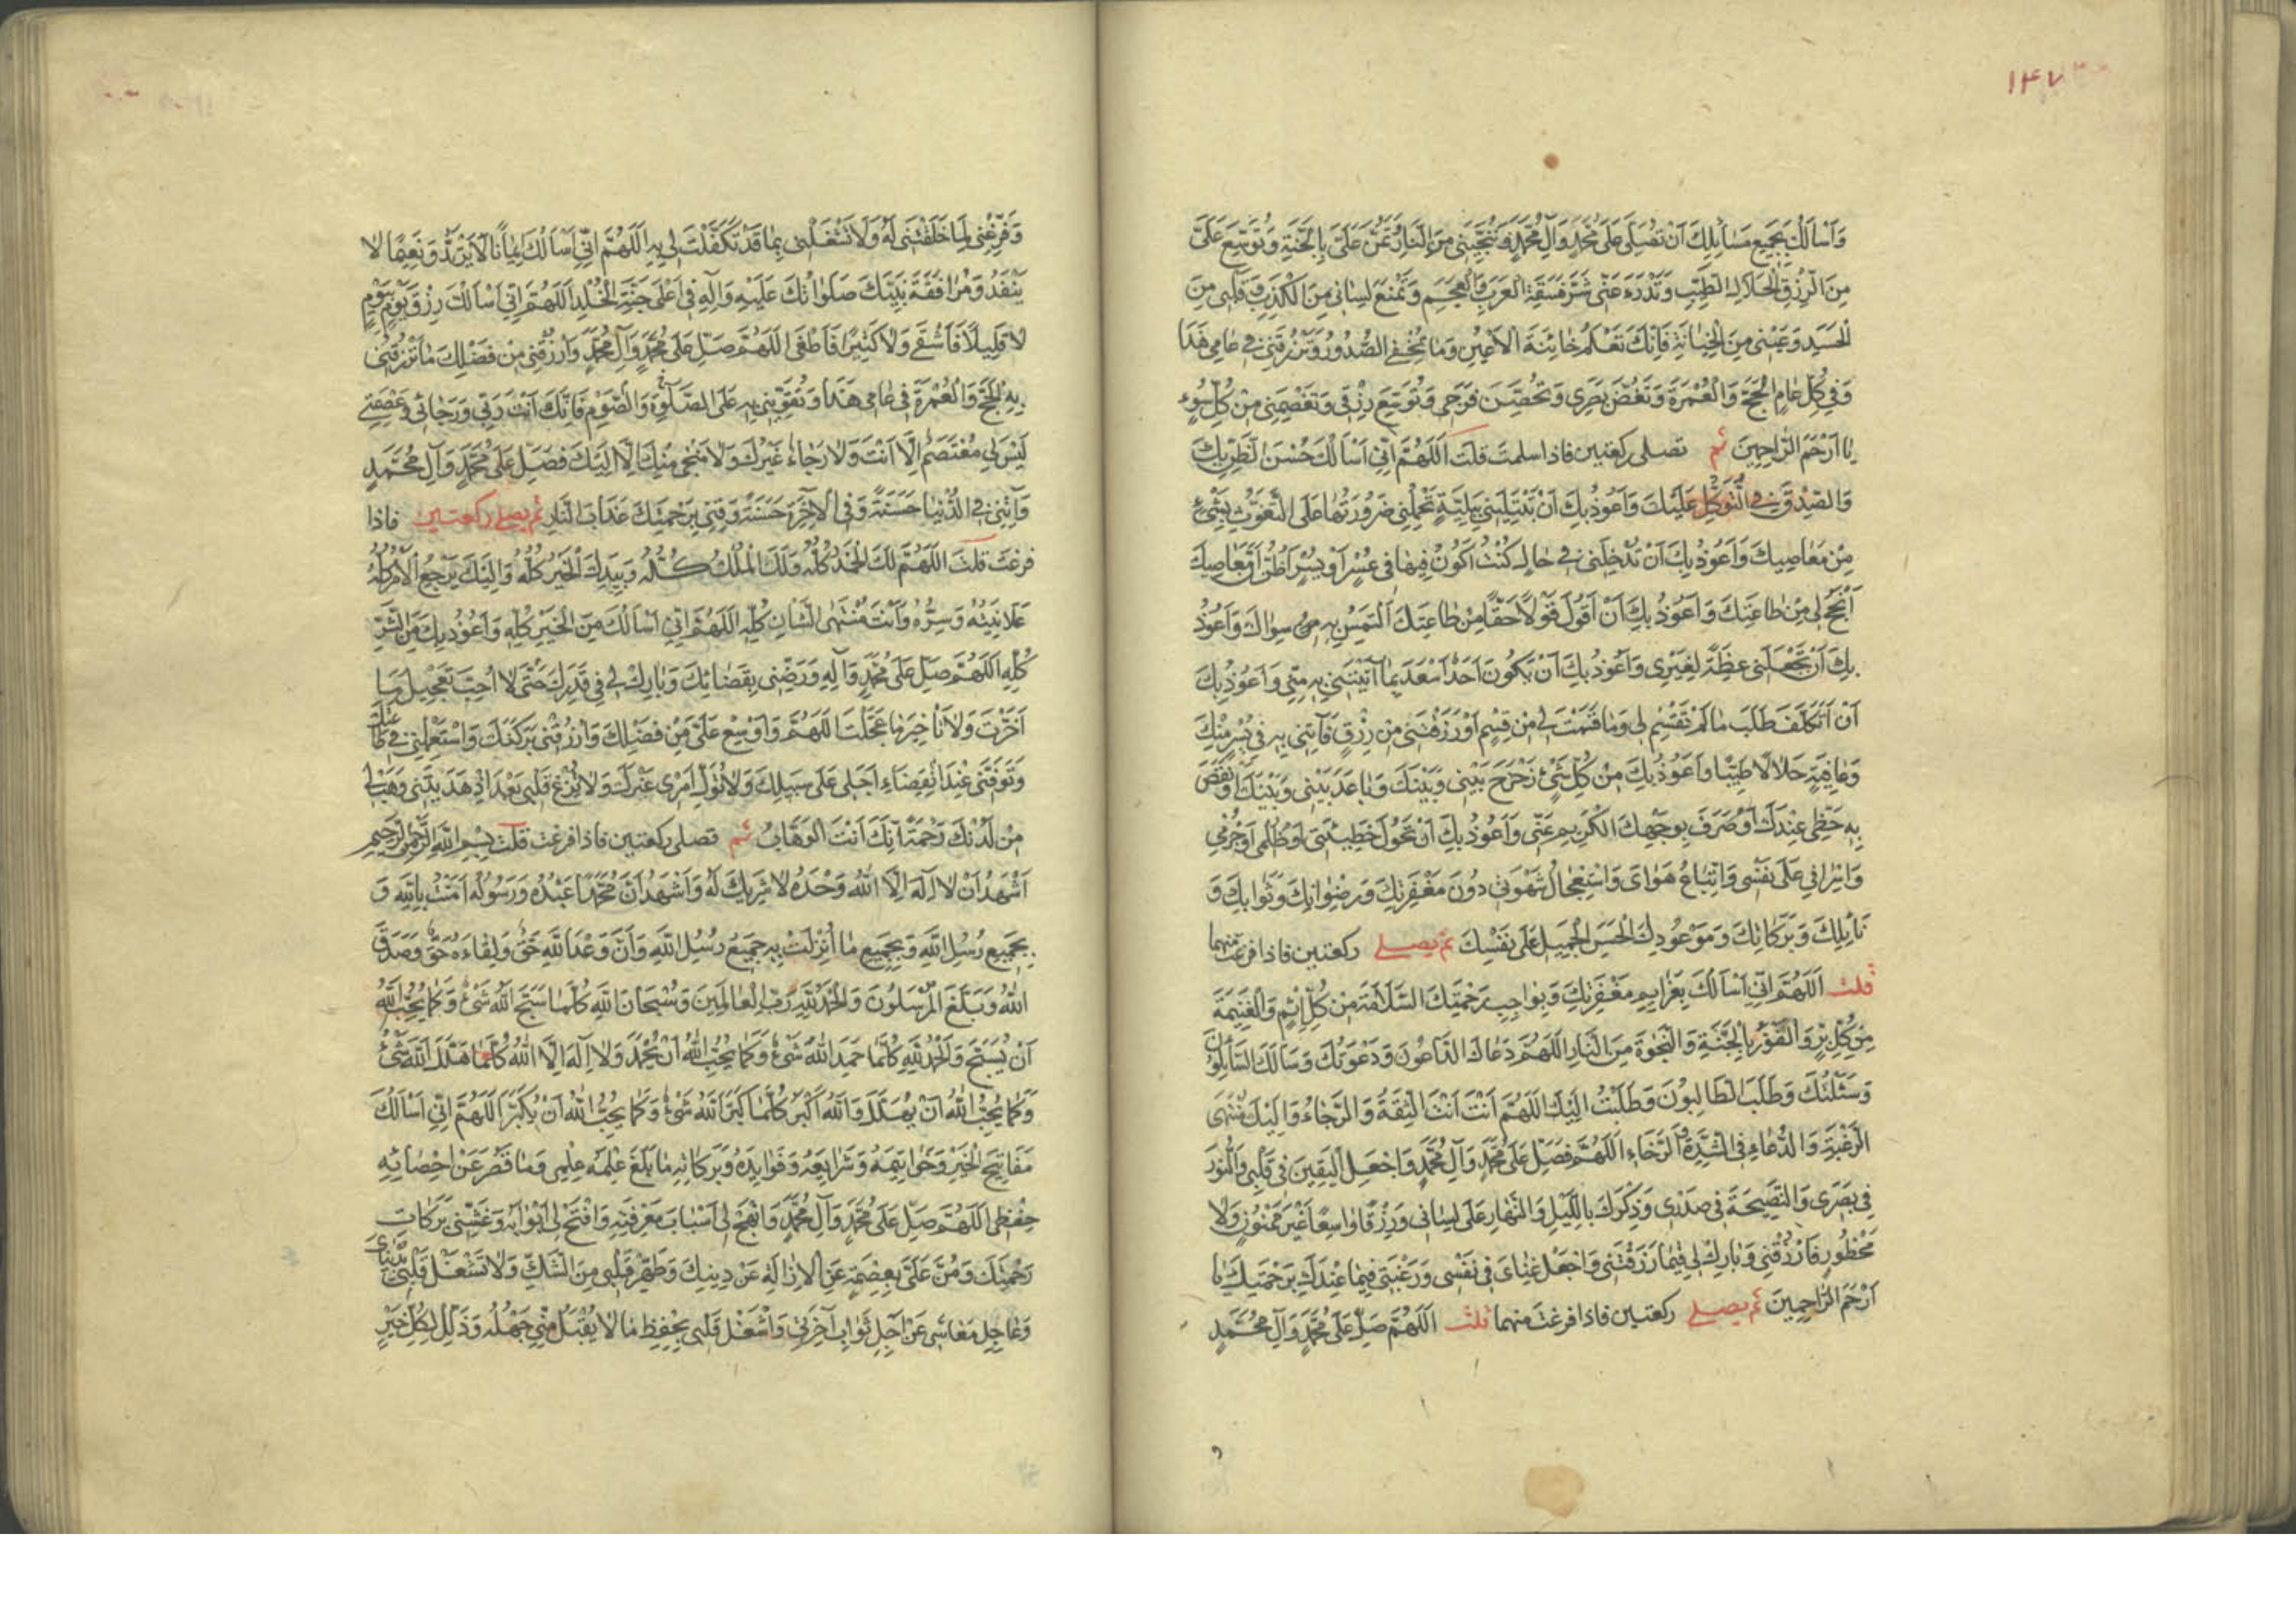 ۱۴۷
وَاَسْاَلُكَ بِجَمِيعِ مَسَائِلِكَ اَنْ تُصَلِّىَ عَلَى مُحَمَّدٍ وَآلِ مُحَمَّدٍ وَتُنْجِيَنِى مِنَ النَّارِ وَتَمُنَّ عَلَىَّ بِالْجَنَّةِ وَتُوَسِّعَ عَلَىَّ
مِنَ الرِّزْقِ الْحَلَالِ الطَّيِّبِ وَتَدْرَءَ عَنِّى شَرَّ فَسَقَةِ الْعَرَبِ وَالْعَجَمِ وَتَمْنَعَ لِسَانِى مِنَ الْكَذِبِ وَقَلْبِى مِنَ
الْحَسَدِ وَعَيْنِى مِنَ الْخِيَانَةِ فَاِنَّكَ تَعْلَمُ خَائِنَةَ الْاَعْيُنِ وَمَا تُخْفِى الصُّدُورُ وَتَرْزُقَنِى فِى عَامِى هَذَا
وَفِى كُلِّ عَامٍ الْحَجَّ وَالْعُمْرَةَ وَتَغُضَّ بَصَرِى وَتُحَصِّنَ فَرْجِى وَتُوَسِّعَ رِزْقِى وَتَعْصِمَنِى مِنْ كُلِّ سُوءٍ
يَا اَرْحَمَ الرَّاحِمِينَ ثم تصلى ركعتين فاذا سلمت قلت اَللَّهُمَّ اِنِّى اَسْاَلُكَ حُسْنَ الظَّنِّ بِكَ
وَالصِّدْقَ فِى التَّوَكُّلِ عَلَيْكَ وَاَعُوذُ بِكَ اَنْ تَبْتَلِيَنِى بِبَلِيَّةٍ تَحْمِلُنِى ضَرُورَتُهَا عَلَى التَّغَوُّثِ بِشَىْءٍ
مِنْ مَعَاصِيكَ وَاَعُوذُ بِكَ اَنْ تُدْخِلَنِى فِى حَالٍ كُنْتُ اَكُونُ فِيهَا فِى عُسْرٍ اَوْ يُسْرٍ اَظُنُّ اَنَّ مَعَاصِيَكَ
اَنْجَحُ لِى مِنْ طَاعَتِكَ وَاَعُوذُ بِكَ اَنْ اَقُولَ قَوْلًا حَقًّا مِنْ طَاعَتِكَ اَلْتَمِسُ بِهِ سِوَاكَ وَاَعُوذُ
بِكَ اَنْ تَجْعَلَنِى عِظَةً لِغَيْرِى وَاَعُوذُ بِكَ اَنْ يَكُونَ اَحَدٌ اَسْعَدَ بِمَا آتَيْتَنِى بِهِ مِنِّى وَاَعُوذُ بِكَ
اَنْ اَتَكَلَّفَ طَلَبَ مَا لَمْ تَقْسِمْ لِى وَمَا قَسَمْتَ لِى مِنْ قِسْمٍ اَوْ رَزَقْتَنِى مِنْ رِزْقٍ فَآتِنِى بِهِ فِى يُسْرٍ مِنْكَ
وَعَافِيَةٍ حَلَالًا طَيِّبًا وَاَعُوذُ بِكَ مِنْ كُلِّ شَىْءٍ زَحْزَحَ بَيْنِى وَبَيْنَكَ وَبَاعَدَ بَيْنِى وَبَيْنَكَ اَوْ نَقَصَ
بِهِ حَظِّى عِنْدَكَ اَوْ صَرَفَ بِوَجْهِكَ الْكَرِيمِ عَنِّى وَاَعُوذُ بِكَ اَنْ تَحُولَ خَطِيئَتِى اَوْ ظُلْمِى اَوْ جُرْمِى
وَاِسْرَافِى عَلَى نَفْسِى وَاتِّبَاعُ هَوَاىَ وَاسْتِعْجَالُ شَهْوَتِى دُونَ مَغْفِرَتِكَ وَرِضْوَانِكَ وَثَوَابِكَ وَ
نَائِلِكَ وَبَرَكَاتِكَ وَمَوْعُودِكَ الْحَسَنِ الْجَمِيلِ عَلَى نَفْسِكَ ثم يصلى ركعتين فاذا فرغت منهما
قلت اَللَّهُمَّ اِنِّى اَسْاَلُكَ بِعَزَائِمِ مَغْفِرَتِكَ وَبِوَاجِبِ رَحْمَتِكَ السَّلَامَةَ مِنْ كُلِّ اِثْمٍ وَالْغَنِيمَةَ
مِنْ كُلِّ بِرٍّ وَالْفَوْزَ بِالْجَنَّةِ وَالنَّجٰوةَ مِنَ النَّارِ اَللَّهُمَّ دَعَاكَ الدَّاعُونَ وَدَعَوْتُكَ وَسَاَلَكَ السَّائِلُونَ
وَسَئَلْتُكَ وَطَلَبَ الطَّالِبُونَ وَطَلَبْتُ اِلَيْكَ اَللَّهُمَّ اَنْتَ اَنْتَ الثِّقَةُ وَالرَّجَاءُ وَاِلَيْكَ مُنْتَهَى
الرَّغْبَةِ وَالدُّعَاءِ فِى الشِّدَّةِ وَالرَّخَاءِ اَللَّهُمَّ فَصَلِّ عَلَى مُحَمَّدٍ وَآلِ مُحَمَّدٍ وَاجْعَلِ الْيَقِينَ فِى قَلْبِى وَالنُّورَ
فِى بَصَرِى وَالنَّصِيحَةَ فِى صَدْرِى وَذِكْرَكَ بِاللَّيْلِ وَالنَّهَارِ عَلَى لِسَانِى وَرِزْقًا وَاسِعًا غَيْرَ مَمْنُونٍ وَلَا
مَحْظُورٍ فَارْزُقْنِى وَبَارِكْ لِى فِيمَا رَزَقْتَنِى وَاجْعَلْ غِنَاىَ فِى نَفْسِى وَرَغْبَتِى فِيمَا عِنْدَكَ بِرَحْمَتِكَ يَا
اَرْحَمَ الرَّاحِمِينَ ثم يصلى ركعتين فاذا فرغت منهما قلت اَللَّهُمَّ صَلِّ عَلَى مُحَمَّدٍ وَآلِ مُحَمَّدٍ
و
وَفَرِّغْنِى لِمَا خَلَقْتَنِى لَهُ وَلَا تَشْغَلْنِى بِمَا قَدْ تَكَفَّلْتَ لِى بِهِ اَللَّهُمَّ اِنِّى اَسْاَلُكَ اِيمَانًا لَا يَرْتَدُّ وَنَعِيمًا لَا
يَنْفَدُ وَمُرَافَقَةَ نَبِيِّكَ صَلَوَاتُكَ عَلَيْهِ وَآلِهِ فِى اَعْلَى جَنَّةِ الْخُلْدِ اَللَّهُمَّ اِنِّى اَسْاَلُكَ رِزْقَ يَوْمٍ بِيَوْمٍ
لَا قَلِيلًا فَاَشْقَى وَلَا كَثِيرًا فَاَطْغَى اَللَّهُمَّ صَلِّ عَلَى مُحَمَّدٍ وَآلِ مُحَمَّدٍ وَارْزُقْنِى مِنْ فَضْلِكَ مَا تَرْزُقُنِى
بِهِ الْحَجَّ وَالْعُمْرَةَ فِى عَامِى هَذَا وَتُقَوِّينِى بِهِ عَلَى الصَّلٰوةِ وَالصَّوْمِ فَاِنَّكَ اَنْتَ رَبِّى وَرَجَائِى وَعِصْمَتِى
لَيْسَ لِى مُعْتَصَمٌ اِلَّا اَنْتَ وَلَا رَجَاءَ غَيْرُكَ وَلَا مَنْجَى مِنْكَ اِلَّا اِلَيْكَ فَصَلِّ عَلَى مُحَمَّدٍ وَآلِ مُحَمَّدٍ
وَآتِنِى فِى الدُّنْيَا حَسَنَةً وَفِى الْآخِرَةِ حَسَنَةً وَقِنِى بِرَحْمَتِكَ عَذَابَ النَّارِ ثم يصلى ركعتين فاذا
فرغت قلت اَللَّهُمَّ لَكَ الْحَمْدُ كُلُّهُ وَلَكَ الْمُلْكُ كُلُّهُ وَبِيَدِكَ الْخَيْرُ كُلُّهُ وَاِلَيْكَ يَرْجِعُ الْاَمْرُ كُلُّهُ
عَلَانِيَتُهُ وَسِرُّهُ وَاَنْتَ مُنْتَهَى الشَّانِ كُلِّهِ اَللَّهُمَّ اِنِّى اَسْاَلُكَ مِنَ الْخَيْرِ كُلِّهِ وَاَعُوذُ بِكَ مِنَ الشَّرِّ
كُلِّهِ اَللَّهُمَّ صَلِّ عَلَى مُحَمَّدٍ وَآلِهِ وَرَضِّنِى بِقَضَائِكَ وَبَارِكْ لِى فِى قَدَرِكَ حَتَّى لَا اُحِبَّ تَعْجِيلَ مَا
اَخَّرْتَ وَلَا تَاْخِيرَ مَا عَجَّلْتَ اَللَّهُمَّ وَاَوْسِعْ عَلَىَّ مِنْ فَضْلِكَ وَارْزُقْنِى بَرَكَتَكَ وَاسْتَعْمِلْنِى فِى طَاعَتِكَ
وَتَوَفَّنِى عِنْدَ انْقِضَاءِ اَجَلِى عَلَى سَبِيلِكَ وَلَا تُوَلِّ اَمْرِى غَيْرَكَ وَلَا تُزِغْ قَلْبِى بَعْدَ اِذْ هَدَيْتَنِى وَهَبْ لِى
مِنْ لَدُنْكَ رَحْمَةً اِنَّكَ اَنْتَ الْوَهَّابُ ثم تصلى ركعتين فاذا فرغت قلت بِسْمِ اللَّهِ الرَّحْمٰنِ الرَّحِيمِ
اَشْهَدُ اَنْ لَا اِلَهَ اِلَّا اللَّهُ وَحْدَهُ لَا شَرِيكَ لَهُ وَاَشْهَدُ اَنَّ مُحَمَّدًا عَبْدُهُ وَرَسُولُهُ آمَنْتُ بِاللَّهِ وَ
بِجَمِيعِ رُسُلِ اللَّهِ وَبِجَمِيعِ مَا اُنْزِلَتْ بِهِ جَمِيعُ رُسُلِ اللَّهِ وَاَنَّ وَعْدَ اللَّهِ حَقٌّ وَلِقَاءَهُ حَقٌّ وَصَدَقَ
اللَّهُ وَبَلَّغَ الْمُرْسَلُونَ وَالْحَمْدُ لِلَّهِ رَبِّ الْعَالَمِينَ وَسُبْحَانَ اللَّهِ كُلَّمَا سَبَّحَ اللَّهَ شَىْءٌ وَكَمَا يُحِبُّ اللَّهُ
اَنْ يُسَبَّحَ وَالْحَمْدُ لِلَّهِ كُلَّمَا حَمِدَ اللَّهَ شَىْءٌ وَكَمَا يُحِبُّ اللَّهُ اَنْ يُحْمَدَ وَلَا اِلَهَ اِلَّا اللَّهُ كُلَّمَا هَلَّلَ اللَّهَ شَىْءٌ
وَكَمَا يُحِبُّ اللَّهُ اَنْ يُهَلَّلَ وَاللَّهُ اَكْبَرُ كُلَّمَا كَبَّرَ اللَّهَ شَىْءٌ وَكَمَا يُحِبُّ اللَّهُ اَنْ يُكَبَّرَ اَللَّهُمَّ اِنِّى اَسْاَلُكَ
مَفَاتِيحَ الْخَيْرِ وَخَوَاتِيمَهُ وَشَرَايِعَهُ وَفَوَايِدَهُ وَبَرَكَاتِهِ مَا بَلَغَ عِلْمَهُ عِلْمِى وَمَا قَصُرَ عَنْ اِحْصَائِهِ
حِفْظِى اَللَّهُمَّ صَلِّ عَلَى مُحَمَّدٍ وَآلِ مُحَمَّدٍ وَانْهَجْ لِى اَسْبَابَ مَعْرِفَتِهِ وَافْتَحْ لِى اَبْوَابَهُ وَغَشِّنِى بَرَكَاتِ
رَحْمَتِكَ وَمُنَّ عَلَىَّ بِعِصْمَةٍ عَنِ الْاِزَالَةِ عَنْ دِينِكَ وَطَهِّرْ قَلْبِى مِنَ الشَّكِّ وَلَا تَشْغَلْ قَلْبِى بِدُنْيَاىَ
وَعَاجِلِ مَعَاشِى عَنْ آجِلِ ثَوَابِ آخِرَتِى وَاشْغَلْ قَلْبِى بِحِفْظِ مَا لَا يُقْبَلُ مِنِّى جَهْلُهُ وَذَلِّلْ لِكُلِّ خَيْرٍ